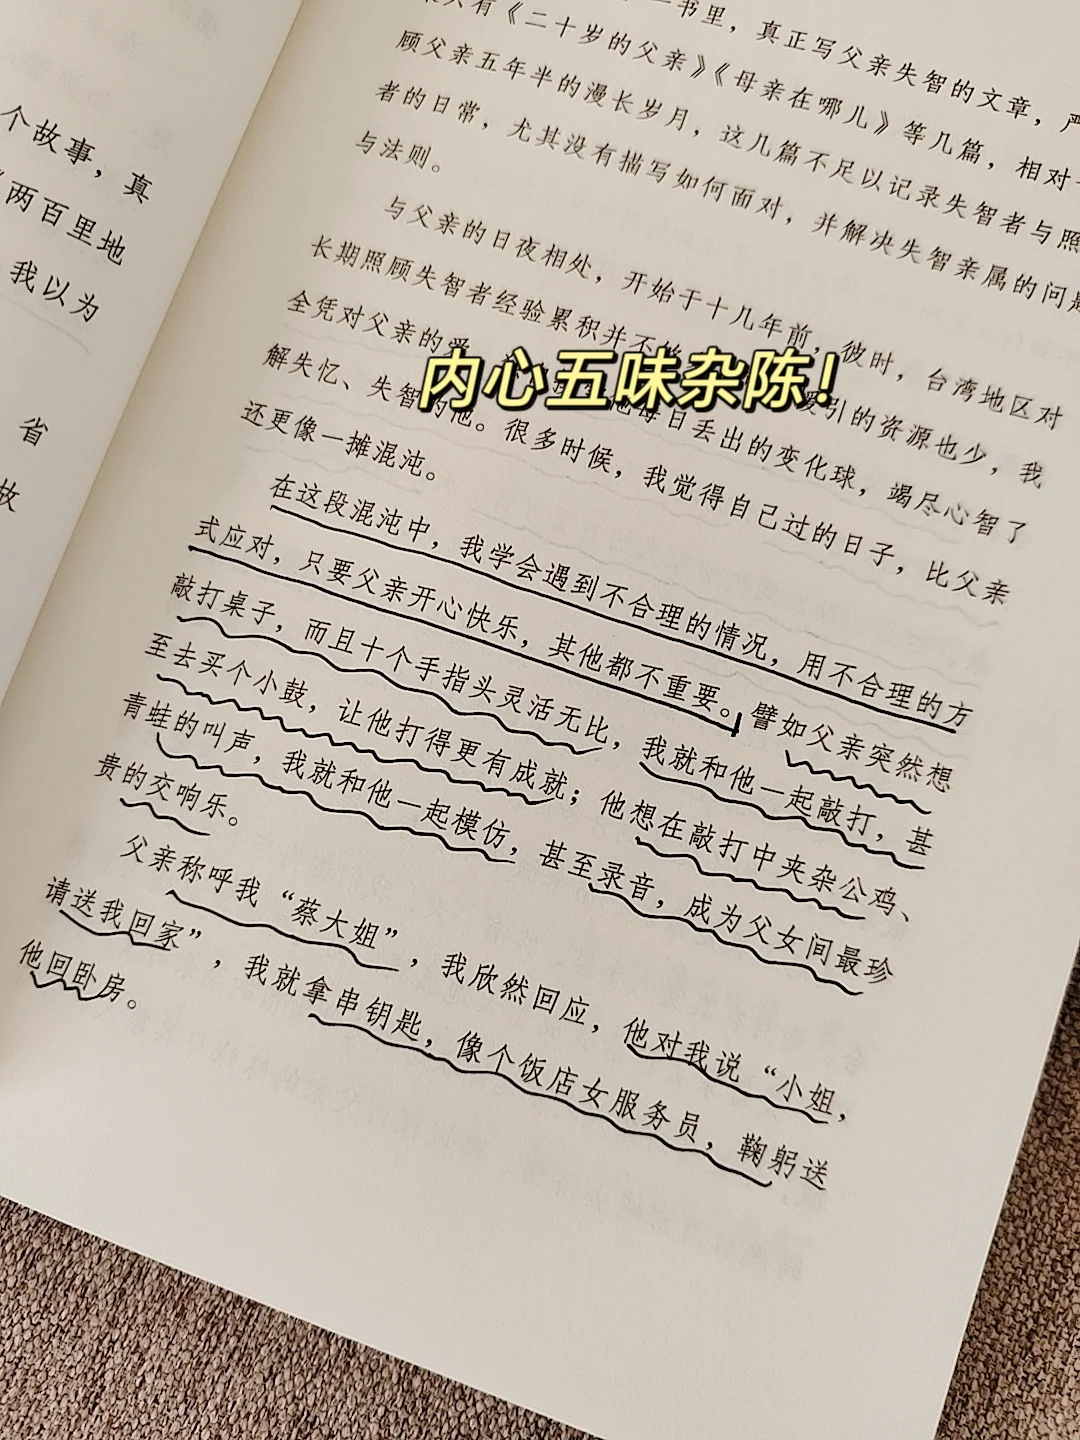 个故事，真
两百里地
我以为
省
故
书里，真正写父亲失智的文章，严
只有《二十岁的父亲》《母亲在哪儿》等几篇，相对
顾父亲五年半的漫长岁月，这几篇不足以记录失智者与照
者的日常，尤其没有描写如何面对，并解决失智亲属的问题
与法则。
与父亲的日夜相处，开始于十几年前，彼时，台湾地区对
长期照顾失智者经验累积并不 引的资源也少，我
全凭对父亲的爱 他每日丢出的变化球，竭尽心智了
解失忆、失智的他。很多时候，我觉得自己过的日子，比父亲
还更像一摊混沌。
内心五味杂陈！
在这段混沌中，我学会遇到不合理的情况，用不合理的方
式应对，只要父亲开心快乐，其他都不重要。譬如父亲突然想
敲打桌子，而且十个手指头灵活无比，我就和他一起敲打，甚
至去买个小鼓，让他打得更有成就；他想在敲打中夹杂公鸡、
青蛙的叫声，我就和他一起模仿，甚至录音，成为父女间最珍
贵的交响乐。
父亲称呼我“蔡大姐”，我欣然回应，他对我说“小姐，
请送我回家”，我就拿串钥匙，像个饭店女服务员，鞠躬送
他回卧房。